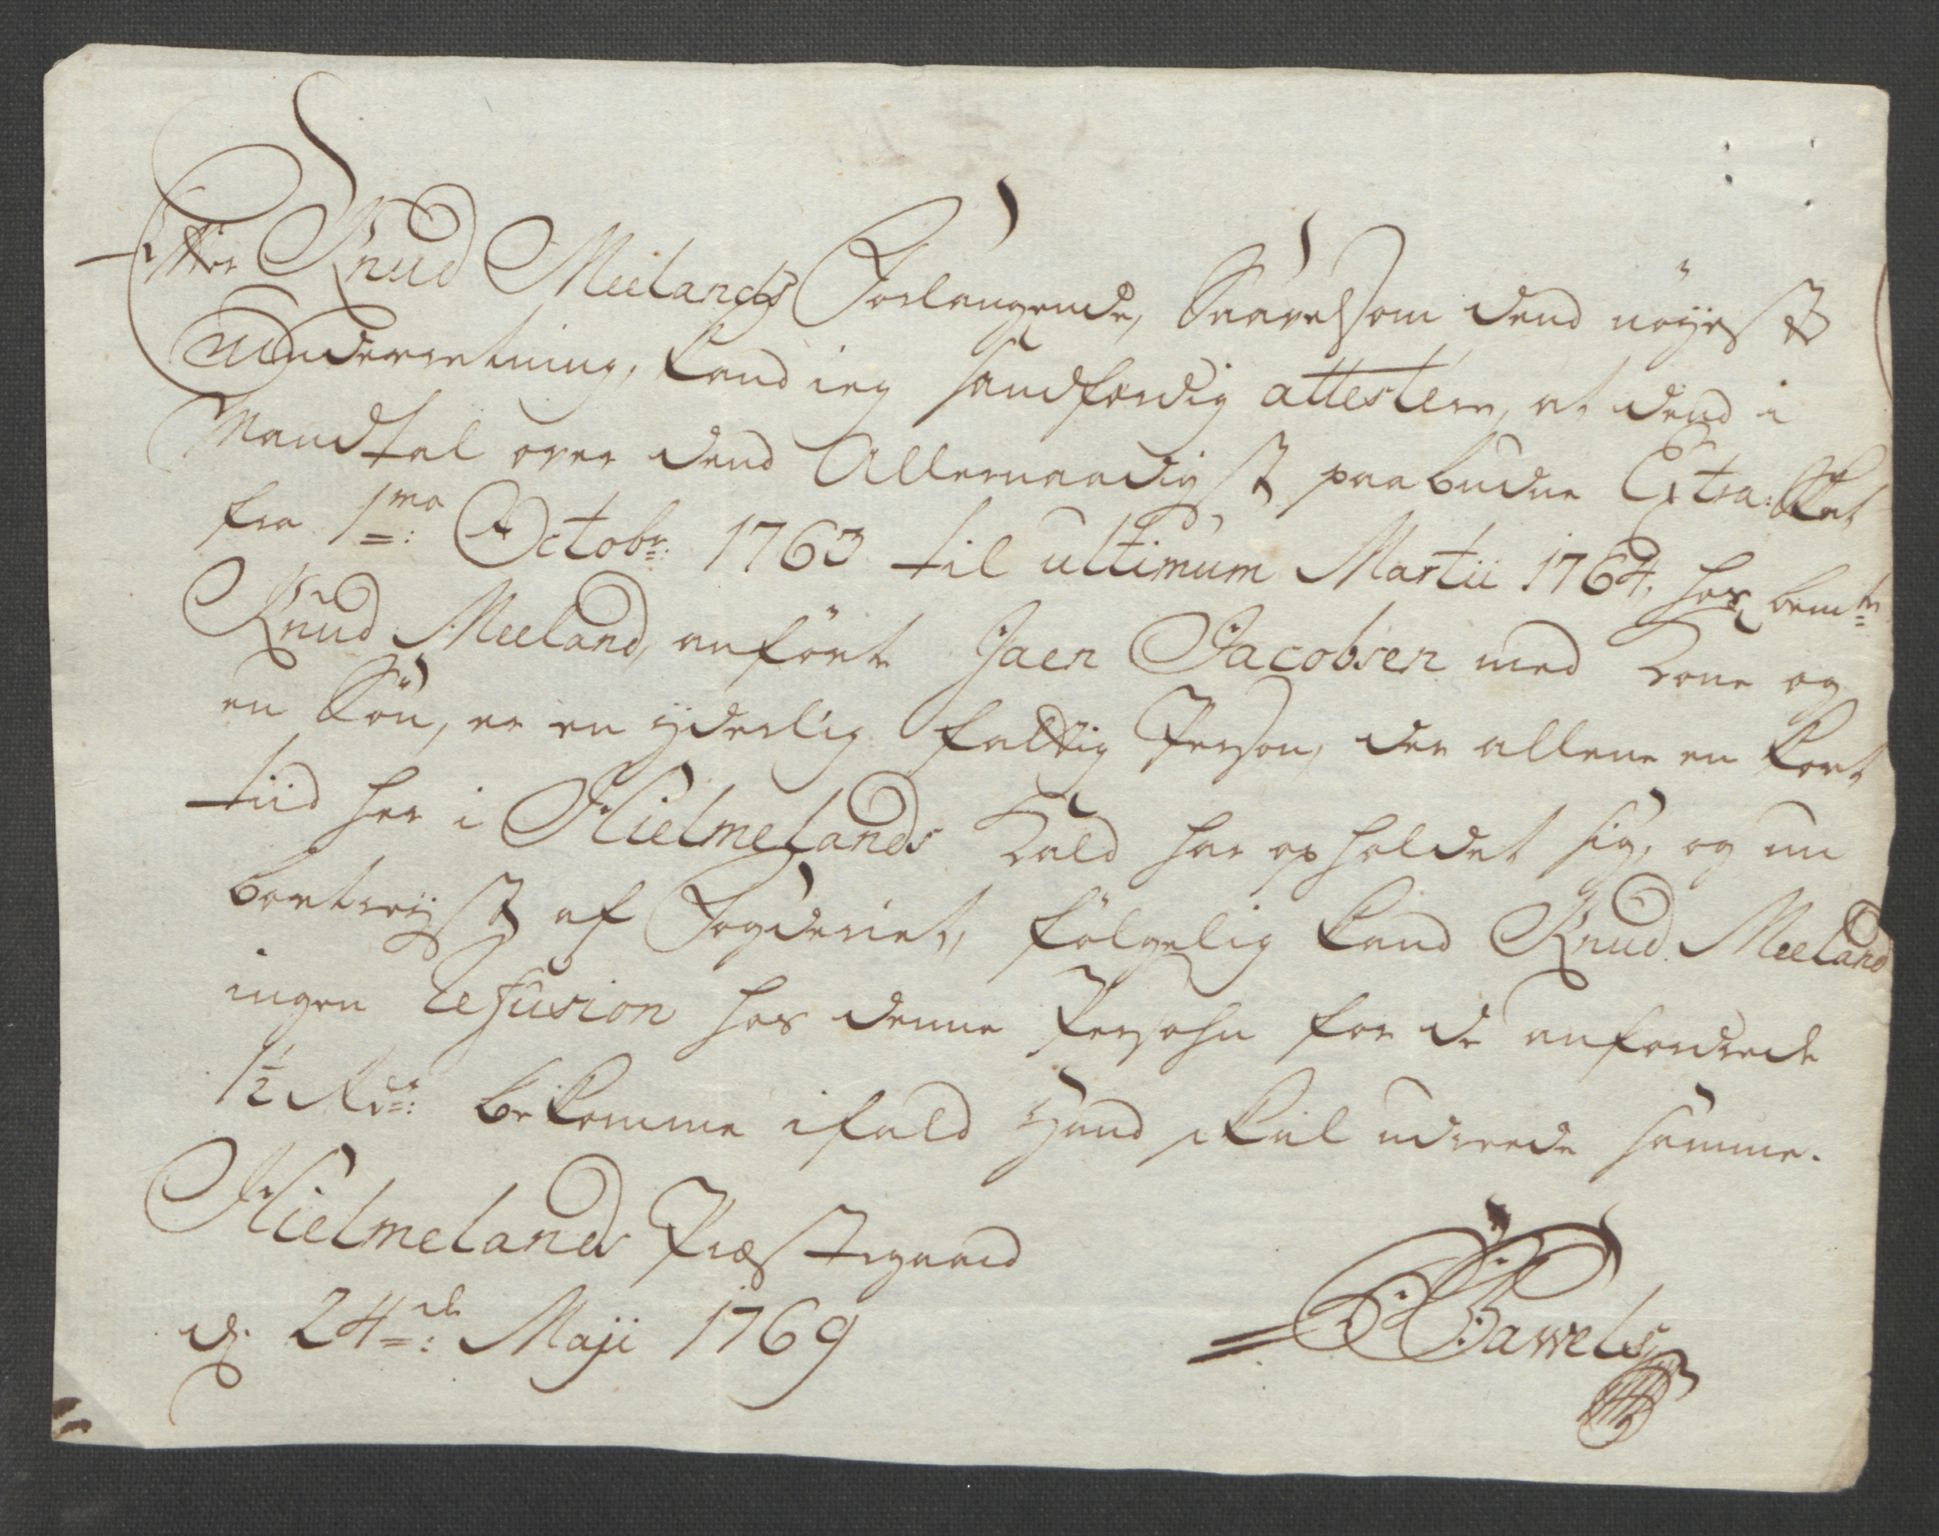 Efter Knud Meelands Forlangende, Saavelsom dend nöyeste
Underretning, kand ieg sandfærdig attestere, at dend i
Mandtal over dend Allernaadigst paabudne Extra: Skat
fra 1mo: Octobr: 1763 til ultimum Martii 1764, hos bemte
Knud Meeland, anförte Jaen Jacobsen med Kone og
en Sön, er en yderlig fattig Person, der allene en kort
tiid her i Hielmelands Kald har opholdet sig, og nu
bortreyst af Fogderiet, fölgelig kand Knud Meeland
ingen Refusion hos denne Persohn for de anfordrede
1½ Rdr: bekomme ifald Hand skal udreede samme.
Hielmelands Præstegaard
d. 24de: Maji 1769
Pawels